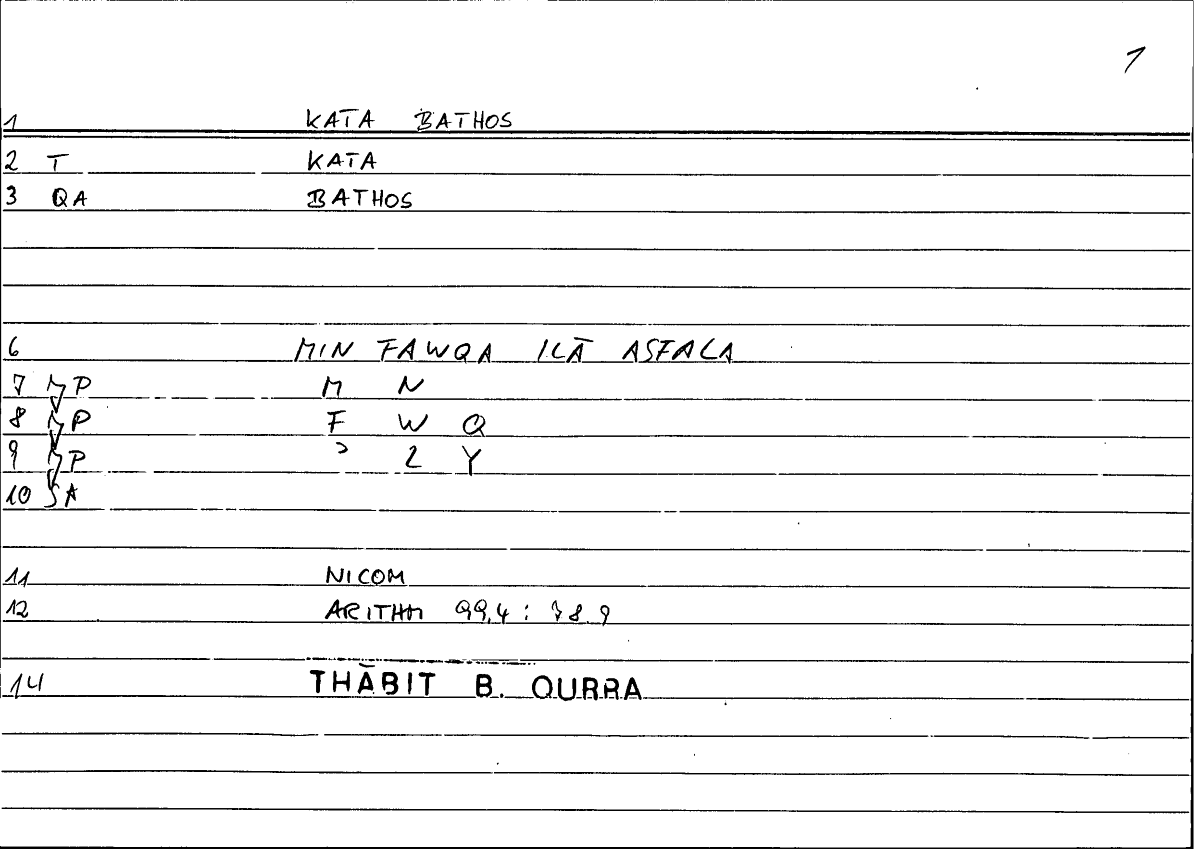 1
1 KATA BATHOS
2 T KATA
3 QA BATHOS
6 MIN FAWQA ILĀ ASFALA
7 P M N
8 P F W Q
9 P ɔ 2 Y
10 SA
11 NICOM
12 ARITHM 99,4 : 78.9
14 THĀBIT B. QURRA